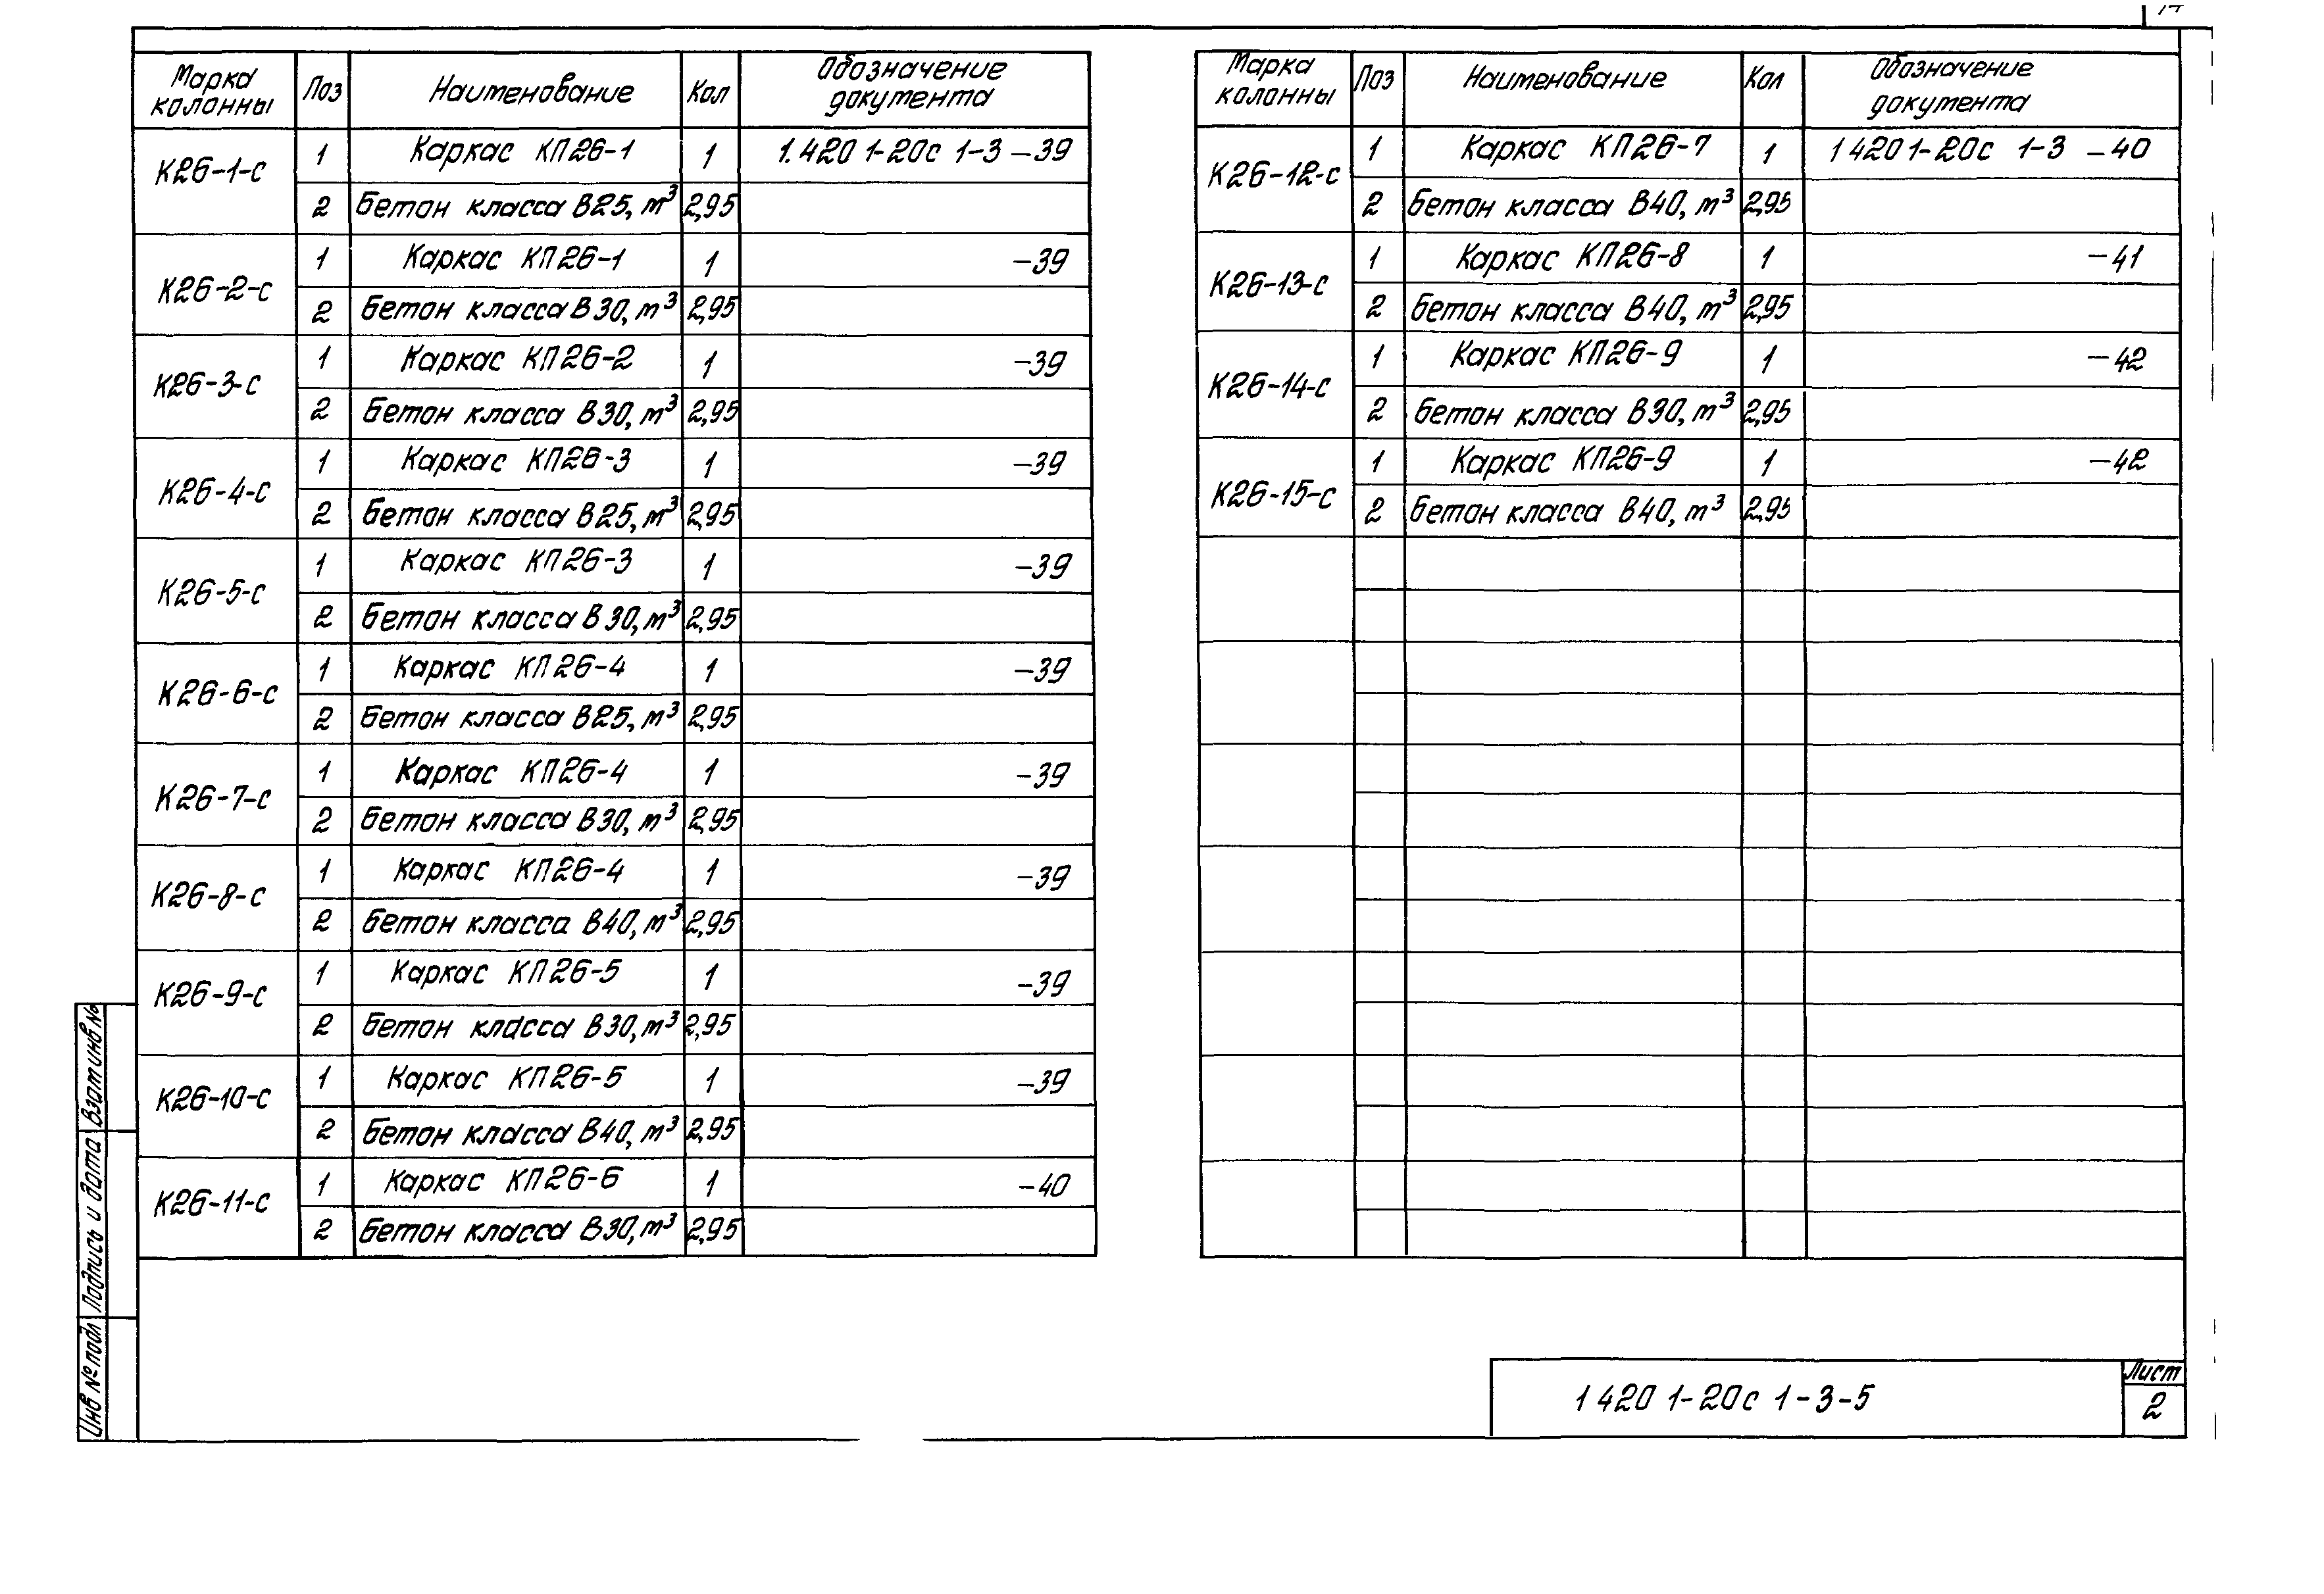 Марка колонны Поз Наименование Кол Обозначение документа
К26-1-с 1 Каркас КП26-1 1 1.420 1-20с 1-3 -39
2 Бетон класса В25, м³ 2,95
К26-2-с 1 Каркас КП26-1 1 -39
2 Бетон класса В30, м³ 2,95
К26-3-с 1 Каркас КП26-2 1 -39
2 Бетон класса В30, м³ 2,95
К26-4-с 1 Каркас КП26-3 1 -39
2 Бетон класса В25, м³ 2,95
К26-5-с 1 Каркас КП26-3 1 -39
2 Бетон класса В30, м³ 2,95
К26-6-с 1 Каркас КП26-4 1 -39
2 Бетон класса В25, м³ 2,95
К26-7-с 1 Каркас КП26-4 1 -39
2 Бетон класса В30, м³ 2,95
К26-8-с 1 Каркас КП26-4 1 -39
2 Бетон класса В40, м³ 2,95
К26-9-с 1 Каркас КП26-5 1 -39
2 Бетон класса В30, м³ 2,95
К26-10-с 1 Каркас КП26-5 1 -39
2 Бетон класса В40, м³ 2,95
К26-11-с 1 Каркас КП26-6 1 -40
2 Бетон класса В30, м³ 2,95
Марка колонны Поз Наименование Кол Обозначение документа
К26-12-с 1 Каркас КП26-7 1 1 420 1-20с 1-3 -40
2 Бетон класса В40, м³ 2,95
К26-13-с 1 Каркас КП26-8 1 -41
2 Бетон класса В40, м³ 2,95
К26-14-с 1 Каркас КП26-9 1 -42
2 Бетон класса В30, м³ 2,95
К26-15-с 1 Каркас КП26-9 1 -42
2 Бетон класса В40, м³ 2,95
Взам инв №
Подпись и дата
Инв № подл
1 420 1-20с 1-3-5
Лист
2